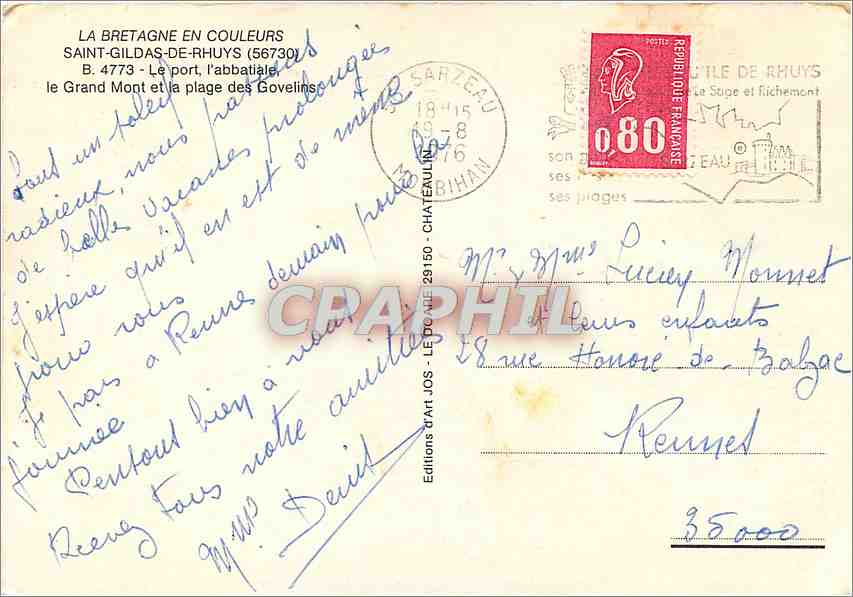 LA BRETAGNE EN COULEURS
SAINT-GILDAS-DE-RHUYS (56730)
B. 4773 - Le port, l'abbatiale,
le Grand Mont et la plage des Govelins
Sous un soleil
radieux, nous passons
de belles vacances prolongées
J'espère qu'il en est de même
pour vous
je pars à Rennes demain pour la
journée
Pensons bien à vous
Recevez tous notre amitiés
Mme Denis
SARZEAU
18H15
19-8
1976
MORBIHAN
POSTES
REPUBLIQUE FRANÇAISE
0,80
ILE DE RHUYS
Le Sage et Richemont
son
ZEAU
ses
ses plages
Editions d'Art JOS - LE DOARE 29150 - CHATEAULIN
CPAPHIL
Mr & Mme Lucien Monnet
et leurs enfants
28 rue Honoré de Balzac
Rennes
35000